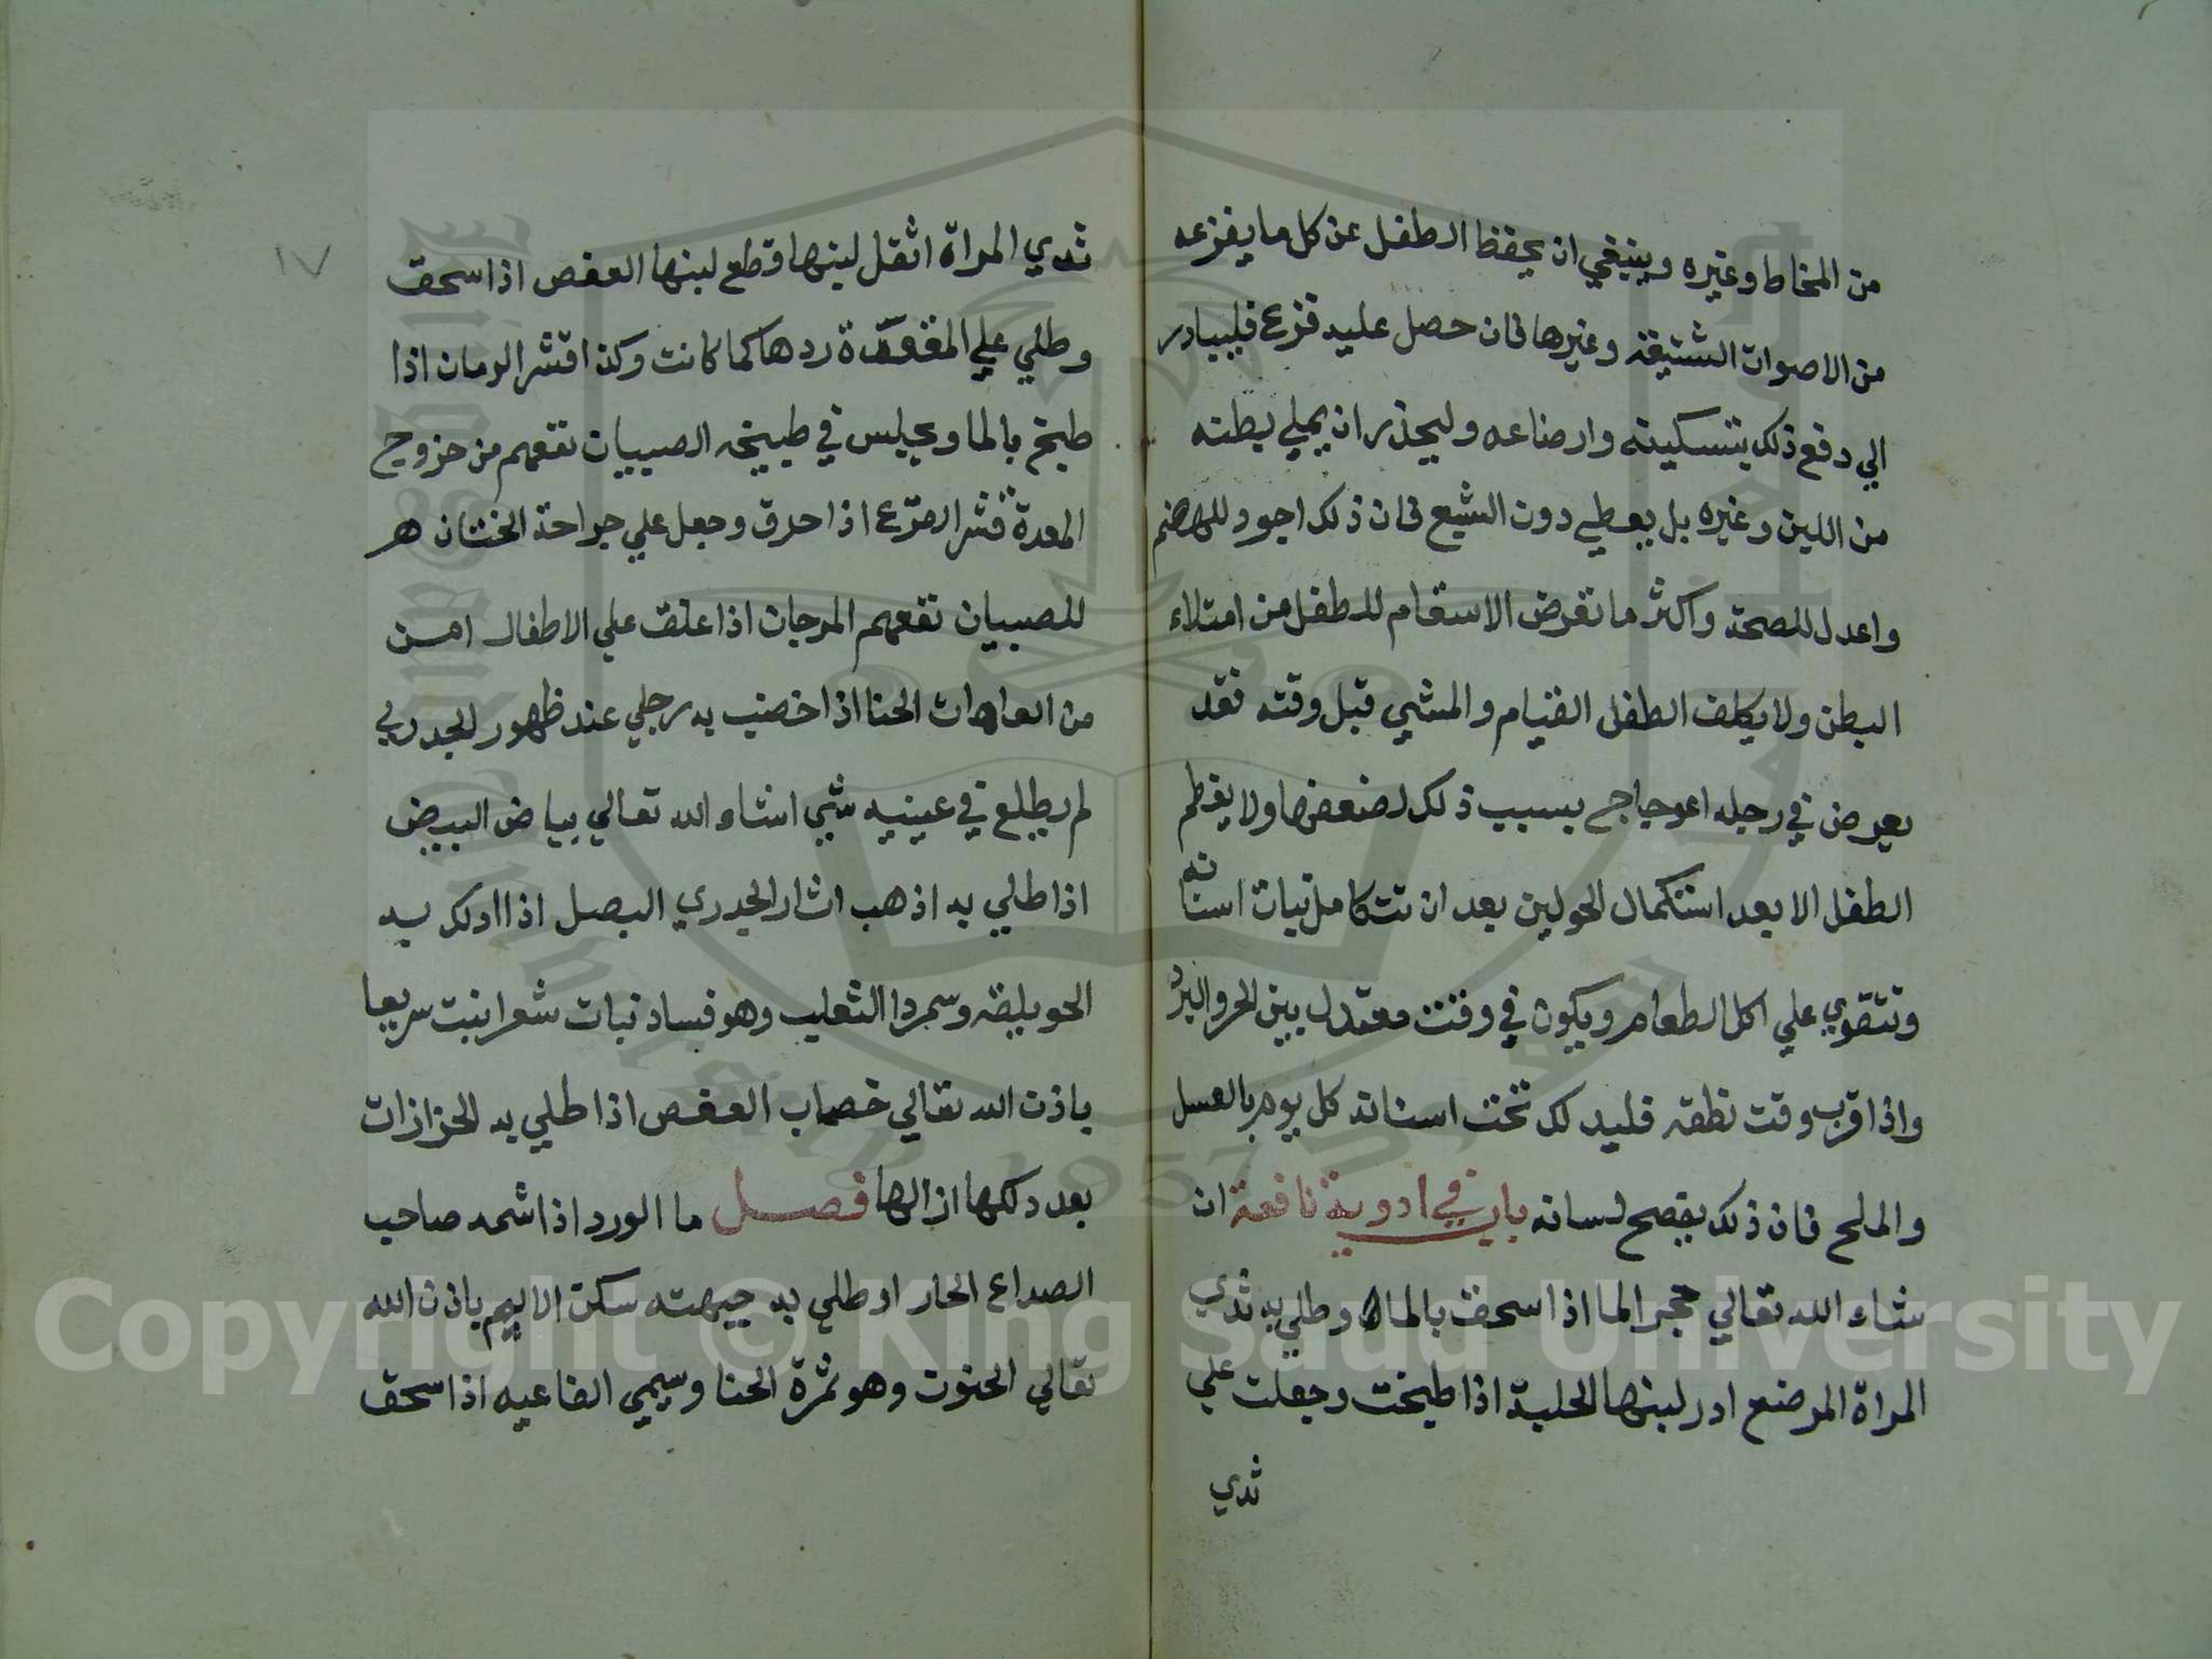 من المخاط وغيره وينبغي ان يحفظ الطفل عن كل ما يفزعه
من الاصوات الشنيعة وغيرها فان حصل عليه فزع فليبادر
الي دفع ذلك بتسكينه وارضاعه وليحذر ان يملي بطنه
من اللبن وغيره بل يعطي دون الشبع فان ذلك اجود للهضم
واعدل للصحة واكثر ما تعرض الاسقام للطفل من امتلاء
البطن ولا يكلف الطفل القيام والمشي قبل وقته فقد
يعرض في رجله اعوجاج بسبب ذلك لضعفها ولا يفطم
الطفل الا بعد استكمال الحولين بعد ان تتكامل نبات اسنانه
وتتقوي علي اكل الطعام ويكون في وقت معتدل بين الحر والبرد
واذا قرب وقت نطقه فليدلك تحت اسنانه كل يوم بالعسل
والملح فان ذلك يفصح لسانه باب في ادوية نافعة ان
شاء الله تعالي حجر الما اذا سحق بالماء وطلي به ثدي
المراة المرضع ادر لبنها الحلبة اذا طبخت وجعلت علي
ثدي
١٧
ثدي المراة اثقل لبنها قطع لبنها العفص اذا سحق
وطلي علي المقعدة ردها كما كانت وكذا قشر الرمان اذا
طبخ بالما ويجلس في طبيخه الصبيان نفعهم من خروج
المعدة قشر القرع اذا احرق وجعل علي جراحة الختان
للصبيان نفعهم المرجان اذا علق علي الاطفال امن
من العاهات الحنا اذا خضب به رجلي عند ظهور الجدري
لم يطلع في عينيه شي انشاء الله تعالي بياض البيض
اذا طلي به اذهب اثار الجدري البصل اذا ادلك به
الحويلقة وسم داالثعلب وهو فساد نبات شعر انبت سريعا
باذن الله تعالي خصاب العفص اذا طلي به الحزازات
بعد دلكها ازالها فصل ما الورد اذا شمه صاحب
الصداع الحار او طلي به جبهته سكن الاليم باذن الله
تعالي الحنون وهو ثمرة الحنا ويسمي الفاعيه اذا سحق
Copyright © King Saud University